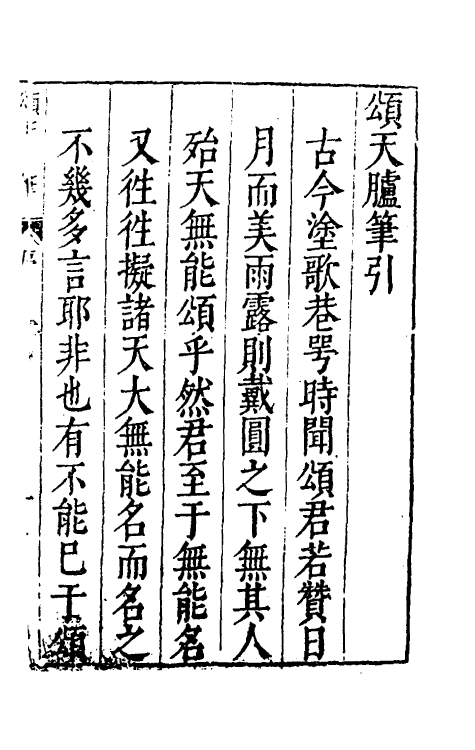 頌天臚筆引
古今塗歌巷咢時聞頌君若贊日
月而美雨露則戴圓之下無其人
殆天無能頌乎然君至于無能名
又徃徃擬諸天大無能名而名之
不幾多言耶非也有不能已于頌